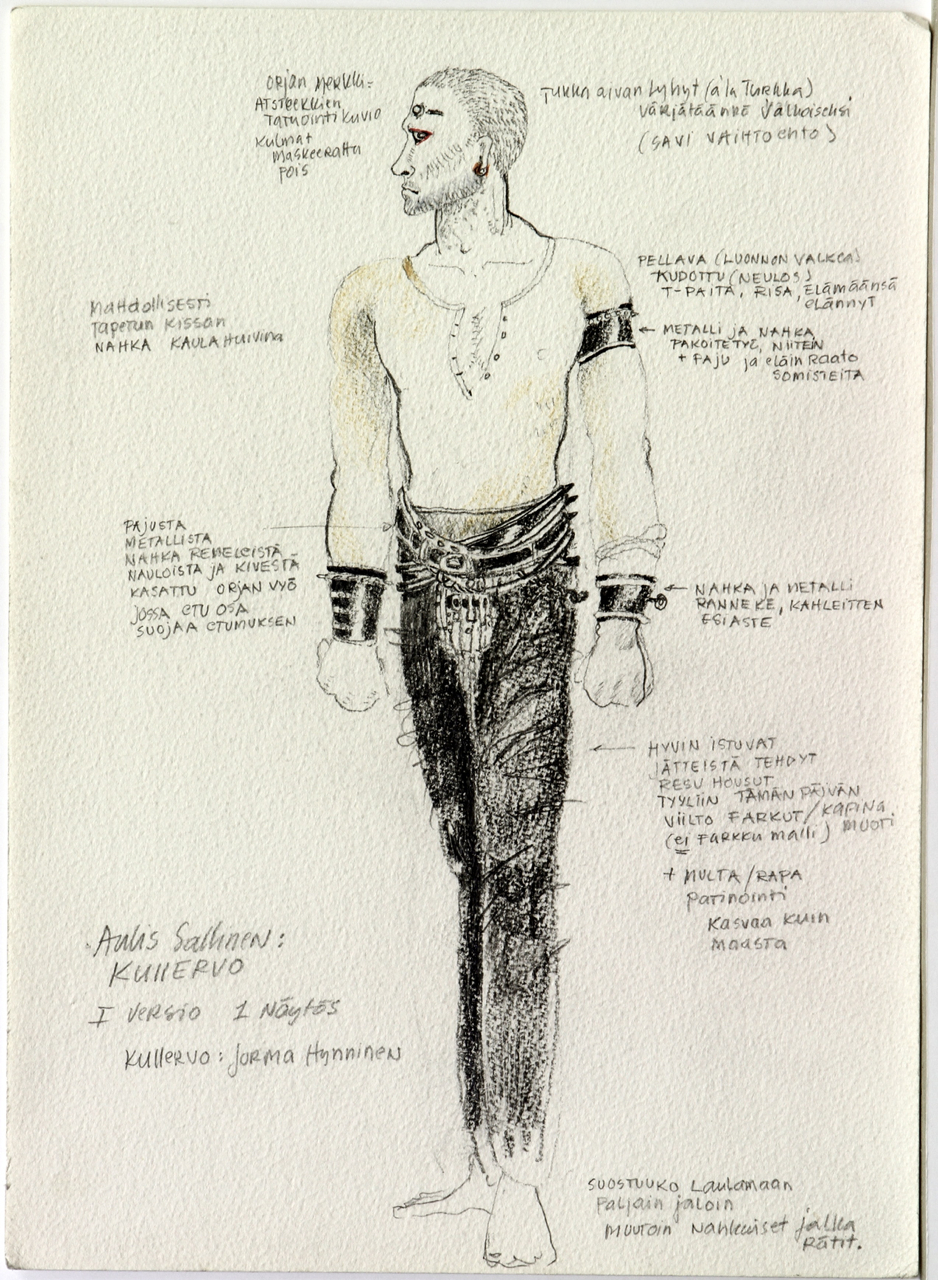 Orjan merkki:
ATSTEEKKIEN
Tatuointi kuvio
Kulmat
maskeerattu
pois
Tukka aivan lyhyt (a'la Turkka)
värjätäänkö valkoiseksi
(SAVI VAIHTOEHTO)
PELLAVA (LUONNON VALKEA)
KUDOTTU (NEULOS)
T-PAITA, RISA, Elämäänsä
elännyt
Mahdollisesti
Tapetun Kissan
NAHKA KAULAHUIVINA
METALLI JA NAHKA
NIITEIN
+ PAJU ja eläin Raato
SOMISTEITA
PAJUSTA
METALLISTA
NAHKA REMELEISTÄ
NAULOISTA JA KIVESTÄ
KASATTU ORJAN VYÖ
JOSSA ETU OSA
SUOJAA ETUMUKSEN
NAHKA JA METALLI
RANNEKE, KAHLEITTEN
ESIASTE
HYVIN ISTUVAT
JÄTTEISTÄ TEHDYT
RESU HOUSUT
TYYLIIN TÄMÄN PÄIVÄN
VIILTO FARKUT / KAPINA
(ei FARKKU malli) MUOTI
+ MULTA / RAPA
Patinointi
Kasvaa kuin
maasta
Aulis Sallinen:
KULLERVO
I Versio 1 Näytös
Kullervo: Jorma Hynninen
SUOSTUUKO Laulamaan
Paljain jaloin
muutoin Nahkaiset jalka
Rätit.